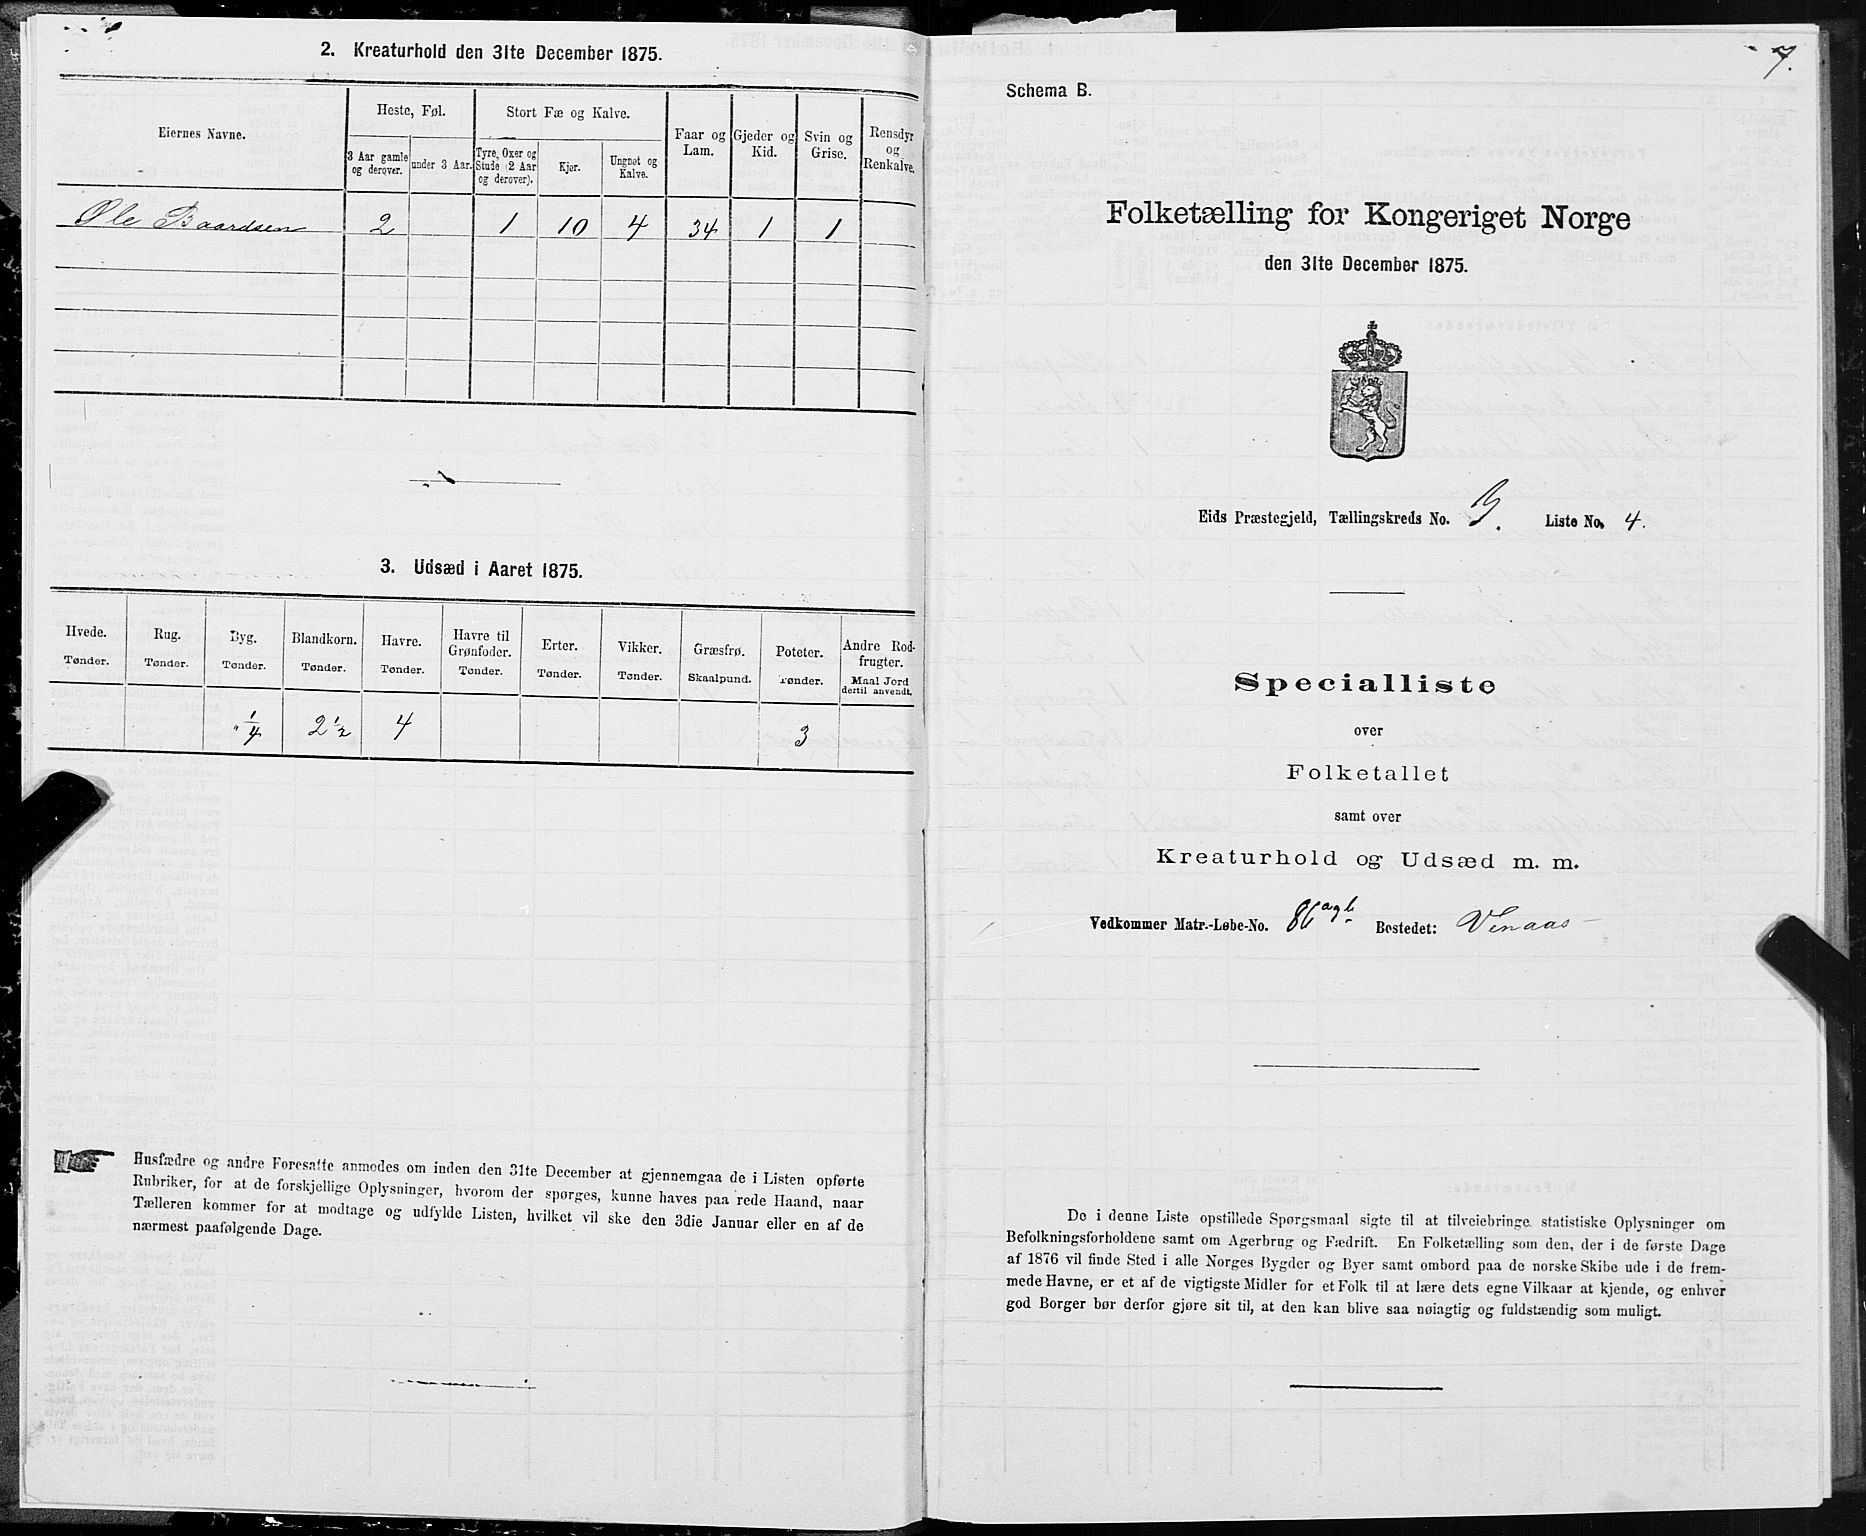 2. Kreaturhold den 31te December 1875.
Eiernes Navne.
Heste, Føl.
Stort Fæ og Kalve.
Faar og Lam.
Gjeder og Kid.
Svin og Grise.
Rensdyr og Renkalve.
3 Aar gamle og derover.
under 3 Aar.
Tyre, Oxer og Stude (2 Aar og derover).
Kjør.
Ungnøt og Kalve.
Ole Baardsen 2 1 10 4 34 1 1
3. Udsæd i Aaret 1875.
Hvede. Rug. Byg. Blandkorn. Havre. Havre til Grønfoder. Erter. Vikker. Græsfrø. Poteter. Andre Rodfrugter.
Tønder. Tønder. Tønder. Tønder. Tønder. Tønder. Tønder. Tønder. Skaalpund. Tønder. Maal Jord dertil anvendt.
1/4 2 1/2 4 3
Husfædre og andre Foresatte anmodes om inden den 31te December at gjennemgaa de i Listen opførte
Rubriker, for at de forskjellige Oplysninger, hvorom der spørges, kunne haves paa rede Haand, naar
Tælleren kommer for at modtage og udfylde Listen, hvilket vil ske den 3die Januar eller en af de
nærmest paafølgende Dage.
7.
Schema B.
Folketælling for Kongeriget Norge
den 31te December 1875.
Eids Præstegjeld, Tællingskreds No. Liste No. 4.
Specialliste
over
Folketallet
samt over
Kreaturhold og Udsæd m. m.
Vedkommer Matr.-Løbe-No. 86 Bostedet: Venaas
De i denne Liste opstillede Spørgsmaal sigte til at tilveiebringe statistiske Oplysninger om
Befolkningsforholdene samt om Agerbrug og Fædrift. En Folketælling som den, der i de første Dage
af 1876 vil finde Sted i alle Norges Bygder og Byer samt ombord paa de norske Skibe ude i de frem-
mede Havne, er et af de vigtigste Midler for et Folk til at lære dets egne Vilkaar at kjende, og enhver
god Borger bør derfor gjøre sit til, at den kan blive saa nøiagtig og fuldstændig som muligt.